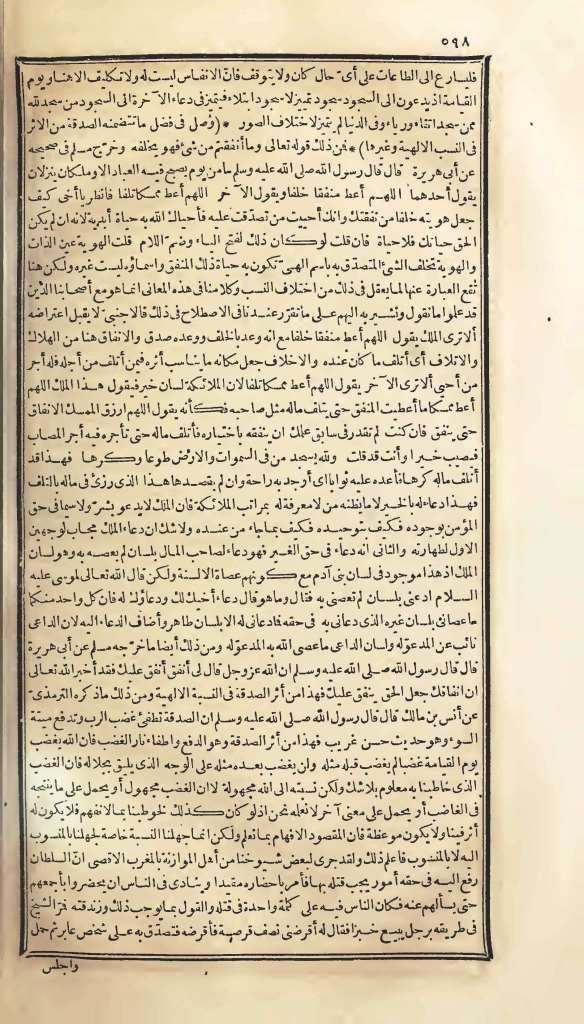 ٥٩٨
فليسارع الى الطاعات على أى حال كان ولا يتوقف فان الانفاس ليست له ولا تكليف الا هنا ويوم
القيامة اذ يدعون الى السجود سجود تمييز لا سجود ابتلاء فيتميز فى دعاء الآخرة الى السجود من سجد لله
ممن سجد اتقاء ورياء وفى الدنيا لم يتميز لاختلاف الصور * (وصل فى فضل ما تتضمنه الصدقة من الاثر
فى النسب الالهية وغيرها) * فمن ذلك قوله تعالى وما أنفقتم من شئ فهو يخلفه وخرج مسلم فى صحيحه
عن أبى هريرة قال قال رسول الله صلى الله عليه وسلم ما من يوم يصبح فيه العباد الا وملكان ينزلان
يقول أحدهما اللهم أعط منفقا خلفا ويقول الآخر اللهم أعط ممسكا تلفا فانظر يا أخى كيف
جعل هويته خلفا من نفقتك وانك أحييت من تصدقت عليه فأحياك الله به حياة أبدية لانه ان لم يكن
الحق حياتك فلا حياة فان قلت لو كان ذلك لفتح الياء وضم اللام قلت الهوية عين الذات
والهوية تخلف الشئ المتصدق به باسم الهى تكون به حياة ذلك المنفق واسماؤه ليست غيره ولكن هنا
تقع العبارة عنها لما يعقل فى ذلك من اختلاف النسب وكلامنا فى هذه المعانى انما هو مع أصحابنا الذين
قد علموا ما نقول ونشير به اليهم على ما تقرر عندنا فى الاصطلاح فى ذلك فالاجنبى لا يقبل اعتراضه
ألا ترى الملك يقول اللهم أعط منفقا خلفا مع انه وعد بالخلف ووعده صدق والانفاق هنا من الهلاك
والاتلاف أى أتلف ما كان عنده والاخلاف جعل مكانه ما يناسب أثره فيمن أتلف من أجله فله أجر
من أحيى ألا ترى الآخر يقول اللهم أعط ممسكا تلفا لان الملائكة لسان خير فيقول هذا الملك اللهم
أعط ممسكا ما أعطيت المنفق حتى يتلف ماله مثل صاحبه فكأنه يقول اللهم ارزق الممسك الانفاق
حتى ينفق فان كنت لم تقدر فى سابق علمك ان ينفقه باختياره فأتلف ماله حتى تأجره فيه أجر المصاب
فيصيب خيرا وأنت قد قلت ولله يسجد من فى السموات والارض طوعا وكرها فهذا قد
أتلف ماله كرها فأعده عليه ثوابا أى أوجد به راحة وان لم يقصدها هذا الذى رزئ فى ماله بالتلف
فهذا دعاء له بالخير لا ما يظنه من لا معرفة له بمراتب الملائكة فان الملك لا يدعو بشر ولا سيما فى حق
المؤمن بوجوده فكيف بتوحيده فكيف بما جاء من عنده ولا شك ان دعاء الملك مجاب لوجهين
الاول لطهارته والثانى انه دعاء فى حق الغير فهو دعاء لصاحب المال بلسان لم يعصه به وهو لسان
الملك اذ هذا موجود فى لسان بنى آدم مع كونهم عصاة الالسنة ولكن قال الله تعالى لموسى عليه
السلام ادعنى بلسان لم تعصنى به فقال وما هو قال دعاء أخيك لك ودعاؤك له فان كل واحد منكما
ما عصانى بلسان غيره الذى دعانى به فى حقه فما دعانى له الا بلسان طاهر وأضاف الدعاء اليه لان الداعى
نائب عن المدعو له ولسان الداعى ما عصى الله به المدعو له ومن ذلك أيضا ما خرجه مسلم عن أبى هريرة
قال قال رسول الله صلى الله عليه وسلم ان الله عز وجل قال لى أنفق أنفق عليك فقد أخبر الله تعالى
ان انفاقك جعل الحق ينفق عليك فهذا من أثر الصدقة فى النسبة الالهية ومن ذلك ما ذكره الترمذى
عن أنس بن مالك قال قال رسول الله صلى الله عليه وسلم ان الصدقة تطفئ غضب الرب وتدفع ميتة
السوء وهو حديث حسن غريب فهذا من أثر الصدقة وهو الدفع واطفاء نار الغضب فان الله يغضب
يوم القيامة غضبا لم يغضب قبله مثله ولن يغضب بعده مثله على الوجه الذى يليق بجلاله فان الغضب
الذى خاطبنا به معلوم بلا شك ولكن نسبته الى الله مجهولة لا ان الغضب مجهول أو يحمل على ما ينتجه
فى الغاضب أو يحمل على معنى آخر لا نعلمه نحن اذ لو كان كذلك لخوطبنا بما لا نفهم فلا يكون له
أثر فينا ولا يكون موعظة فان المقصود الافهام بما نعلم ولكن انما جهلنا النسبة خاصة لجهلنا بالمنسوب
اليه لا بالمنسوب فاعلم ذلك ولقد جرى لبعض شيوخنا من أهل الموازنة بالمغرب الاقصى ان السلطان
رفع اليه فى حقه أمور يجب قتله بها فأمر باحضاره مقيدا وينادى فى الناس ان يحضروا بأجمعهم
حتى يسألهم عنه فكان الناس فيه على كلمة واحدة فى قتله والقول بما يوجب ذلك وزندقته فمر الشيخ
فى طريقه برجل يبيع خبزا فقال له أقرضنى نصف قرصة فأقرضه فتصدق به على شخص عابر ثم حمل
واجلس